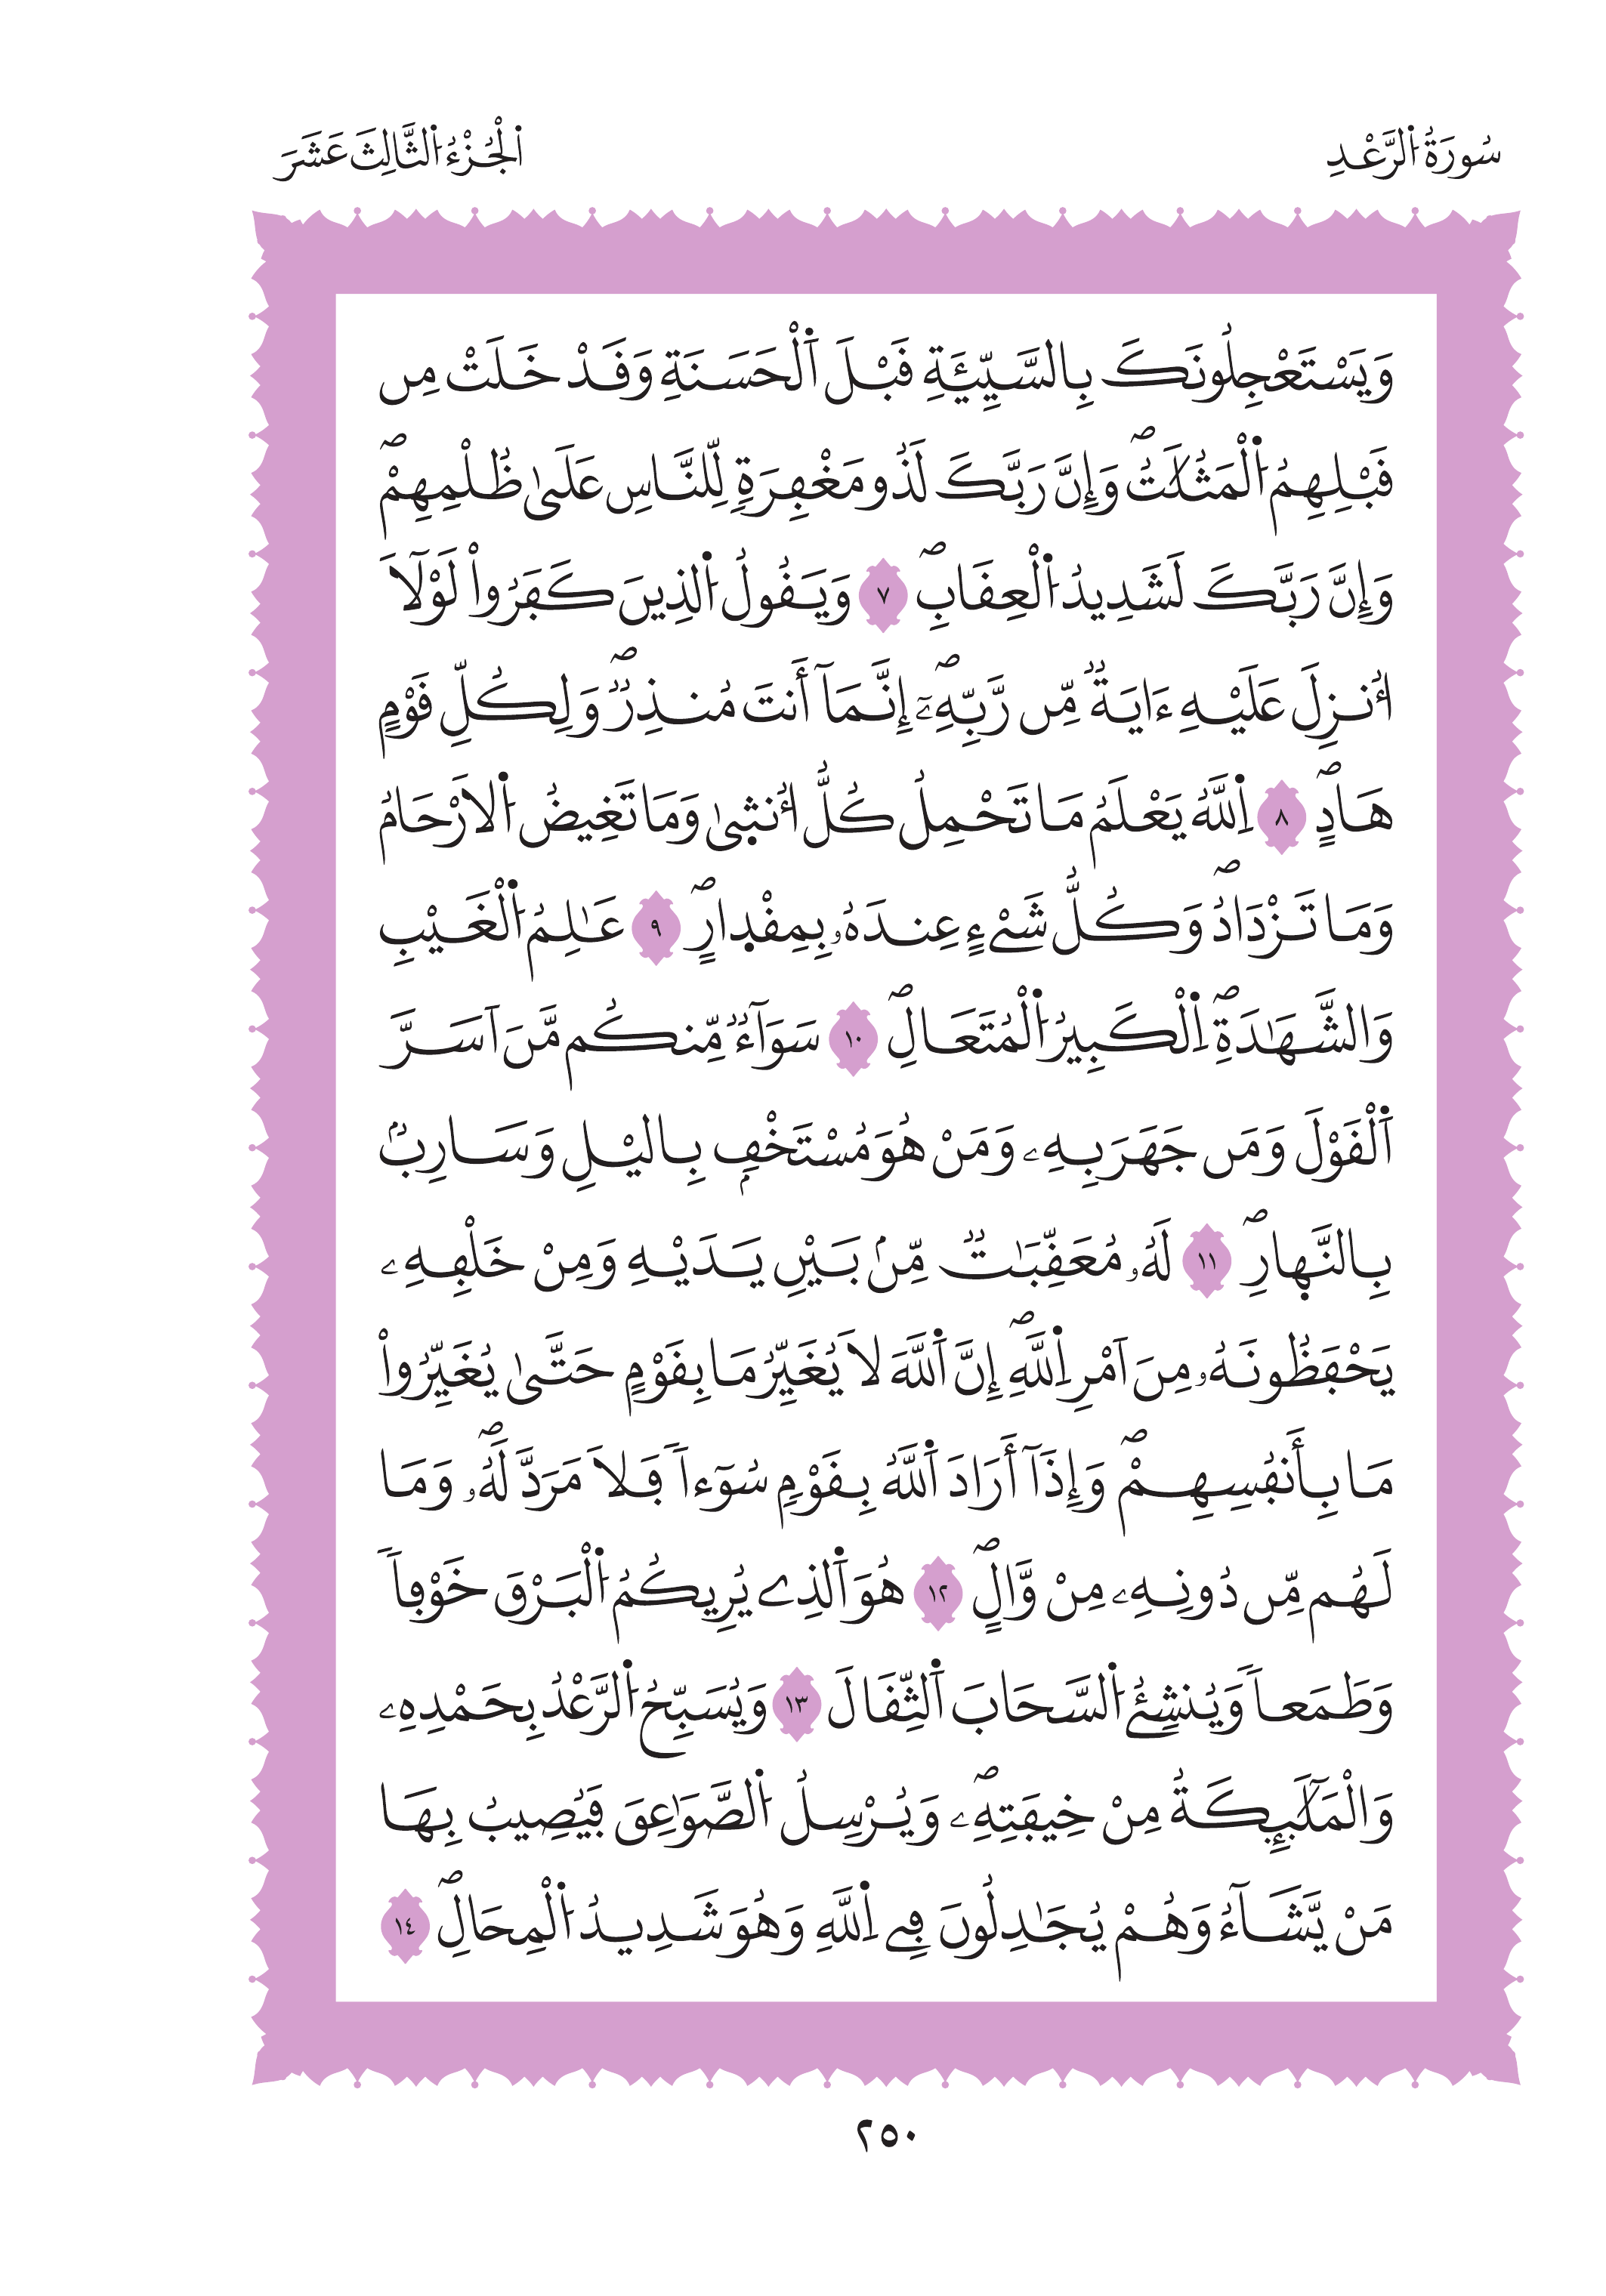 سُورَةُ اُ۬لرَّعْدِ
اَ۬لْجُزْءُ اُ۬لثَّالِثَ عَشَرَ
وَيَسْتَعْجِلُونَكَ بِالسَّيِّئَةِ قَبْلَ اَ۬لْحَسَنَةِ وَقَدْ خَلَتْ مِن
قَبْلِهِمُ اُ۬لْمَثُلَٰتُۖ وَإِنَّ رَبَّكَ لَذُو مَغْفِرَةٖ لِّلنَّاسِ عَلَىٰ ظُلْمِهِمْۖ
وَإِنَّ رَبَّكَ لَشَدِيدُ اُ۬لْعِقَابِۖ ٧ وَيَقُولُ اُ۬لذِينَ كَفَرُواْ لَوْلَآ
أُنزِلَ عَلَيْهِ ءَايَةٞ مِّن رَّبِّهِۦٓۖ إِنَّمَآ أَنتَ مُنذِرٞۖ وَلِكُلِّ قَوْمٍ
هَادٍۖ ٨ اِ۬للَّهُ يَعْلَمُ مَا تَحْمِلُ كُلُّ أُنث۪ىٰ وَمَا تَغِيضُ اُ۬لَارْحَامُ
وَمَا تَزْدَادُۖ وَكُلُّ شَےْءٍ عِندَهُۥ بِمِقْد۪ارٍۖ ٩ عَٰلِمُ اُ۬لْغَيْبِ
وَالشَّهَٰدَةِۖ اِ۬لْكَبِيرُ اُ۬لْمُتَعَالِۖ ١٠ سَوَآءٞ مِّنكُم مَّنَ اَسَرَّ
اَ۬لْقَوْلَ وَمَن جَهَرَ بِهِۦ وَمَنْ هُوَ مُسْتَخْفِۢ بِاليْلِ وَسَارِبُۢ
بِالنَّه۪ارِۖ ١١ لَهُۥ مُعَقِّبَٰتٞ مِّنۢ بَيْنِ يَدَيْهِ وَمِنْ خَلْفِهِۦ
يَحْفَظُونَهُۥ مِنَ اَمْرِ اِ۬للَّهِۖ إِنَّ اَ۬للَّهَ لَا يُغَيِّرُ مَا بِقَوْمٍ حَتَّىٰ يُغَيِّرُواْ
مَا بِأَنفُسِهِمْۖ وَإِذَآ أَرَادَ اَ۬للَّهُ بِقَوْمٖ سُوٓءاٗ فَلَا مَرَدَّ لَهُۥۖ وَمَا
لَهُم مِّن دُونِهِۦ مِنْ وَّالٍۖ ١٢ هُوَ اَ۬لذِے يُرِيكُمُ اُ۬لْبَرْقَ خَوْفاٗ
وَطَمَعاٗ وَيُنشِۓُ اُ۬لسَّحَابَ اَ۬لثِّقَالَ ١٣ وَيُسَبِّحُ اُ۬لرَّعْدُ بِحَمْدِهِۦ
وَالْمَلَٰٓئِكَةُ مِنْ خِيفَتِهِۦۖ وَيُرْسِلُ اُ۬لصَّوَٰعِقَ فَيُصِيبُ بِهَا
مَنْ يَّشَآءُ وَهُمْ يُجَٰدِلُونَ فِے اِ۬للَّهِ وَهُوَ شَدِيدُ اُ۬لْمِحَالِۖ ١٤
٢٥٠